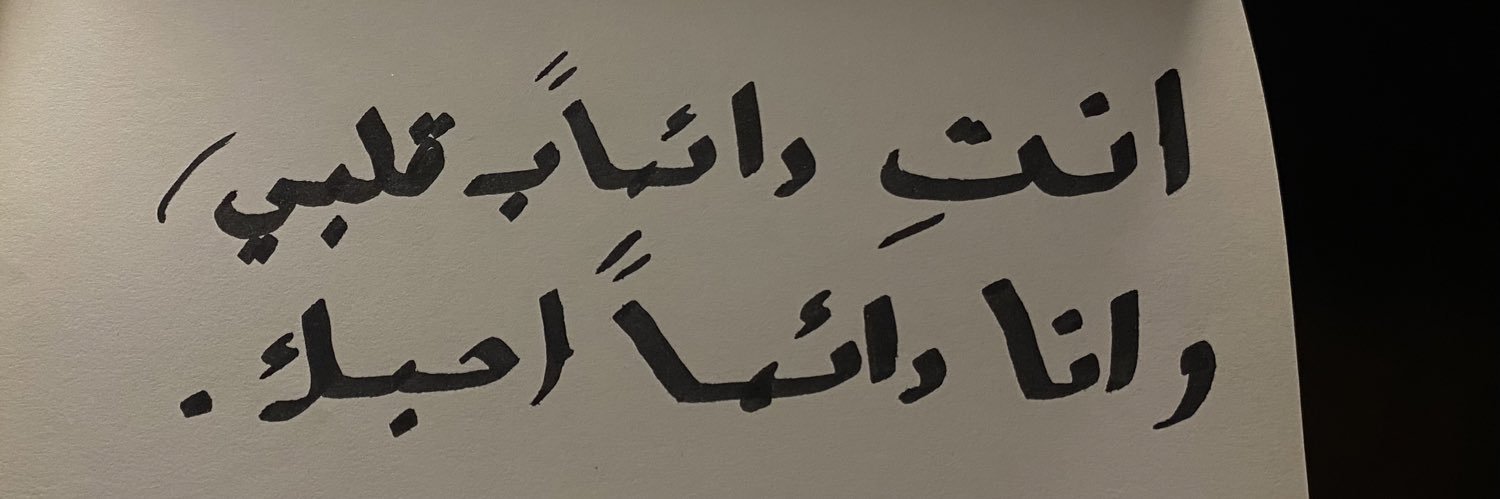 انتِ دائماً ب قلبي
وانا دائماً احبك .